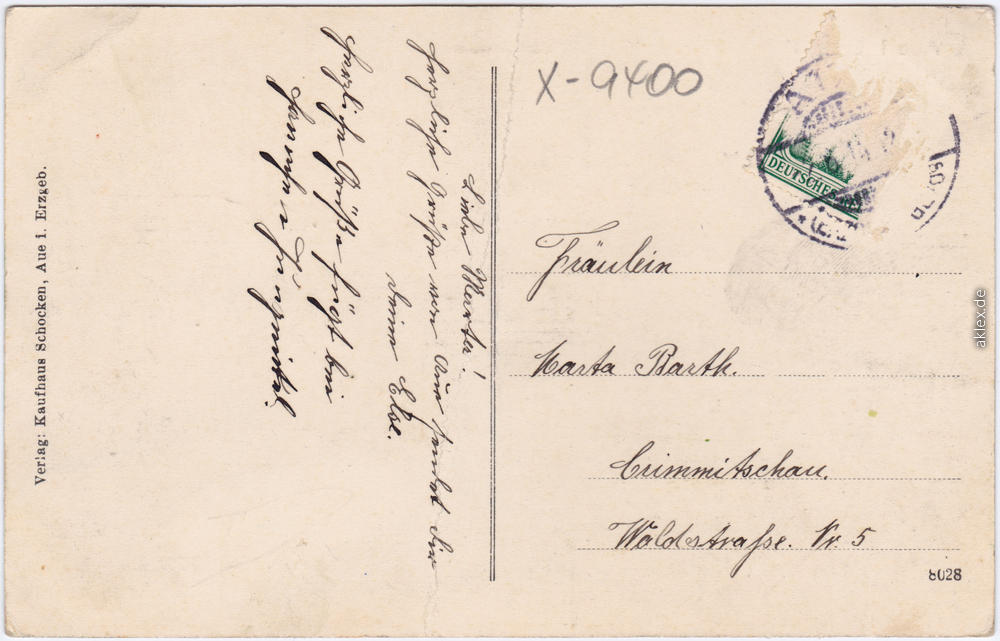 Verlag: Kaufhaus Schocken, Aue i. Erzgeb.
Liebe Marta!
herzliche Grüße von Aue sendet Dir
Deine Else.
Herzliche Grüße fügt bei
X-9400
DEUTSCHES
Fräulein
Marta Barth.
Crimmitschau.
Waldstraße. Nr. 5
8028
aklex.de